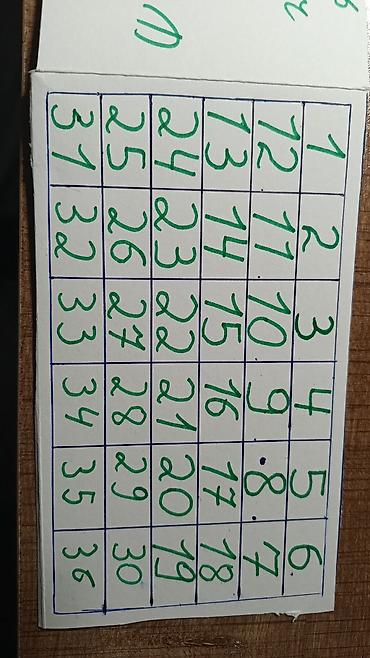 1 2 3 4 5 6
12 11 10 9 8 7
13 14 15 16 17 18
24 23 22 21 20 19
25 26 27 28 29 30
31 32 33 34 35 36